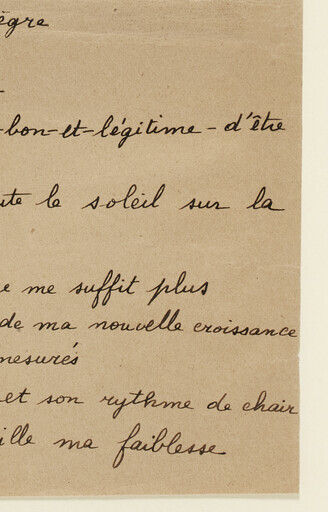 ègre
-bon-et-légitime-d'être
ute le soleil sur la
e me suffit plus
de ma nouvelle croissance
mesurés
et son rythme de chair
ille ma faiblesse